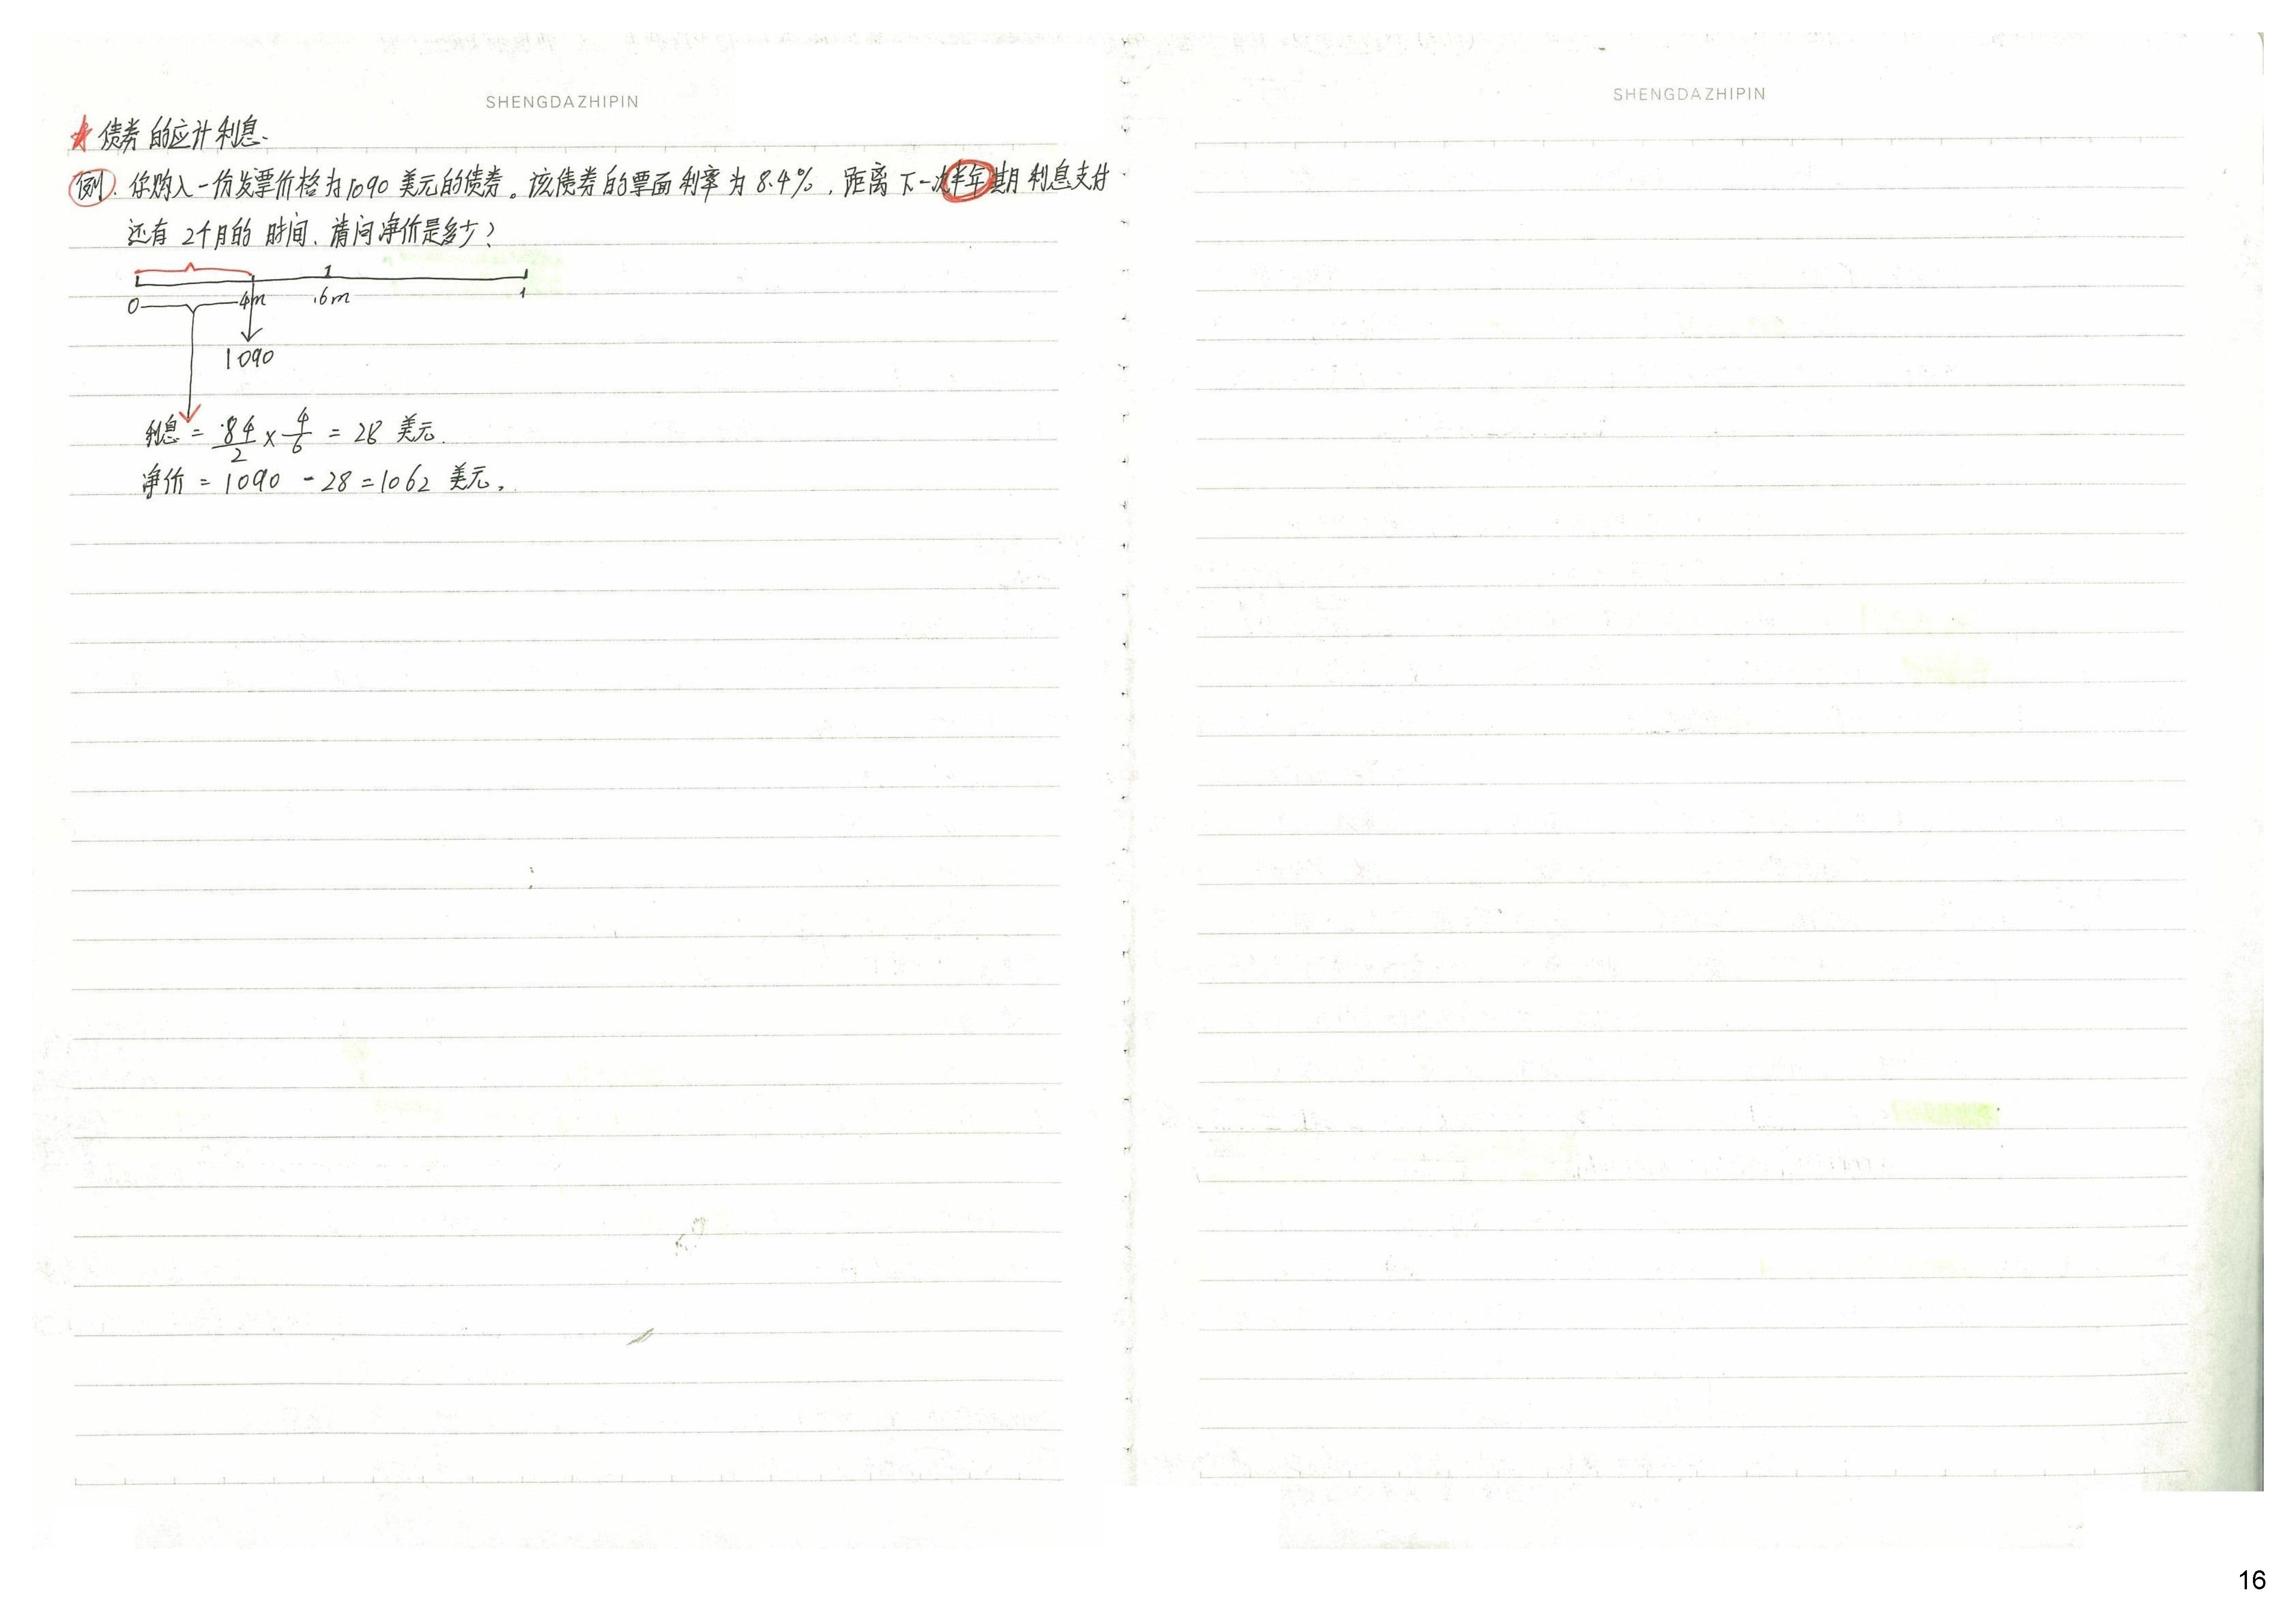 SHENGDAZHIPIN
★ 债券的应计利息.
例. 你购入一份发票价格为1090美元的债券。该债券的票面利率为8.4%,距离下一次半年期利息支付
还有2个月的时间,请问净价是多少?
1
0 4m 6m 1
1090
利息 = 84/2 × 4/6 = 28 美元.
净价 = 1090 - 28 = 1062 美元.
SHENGDAZHIPIN
16